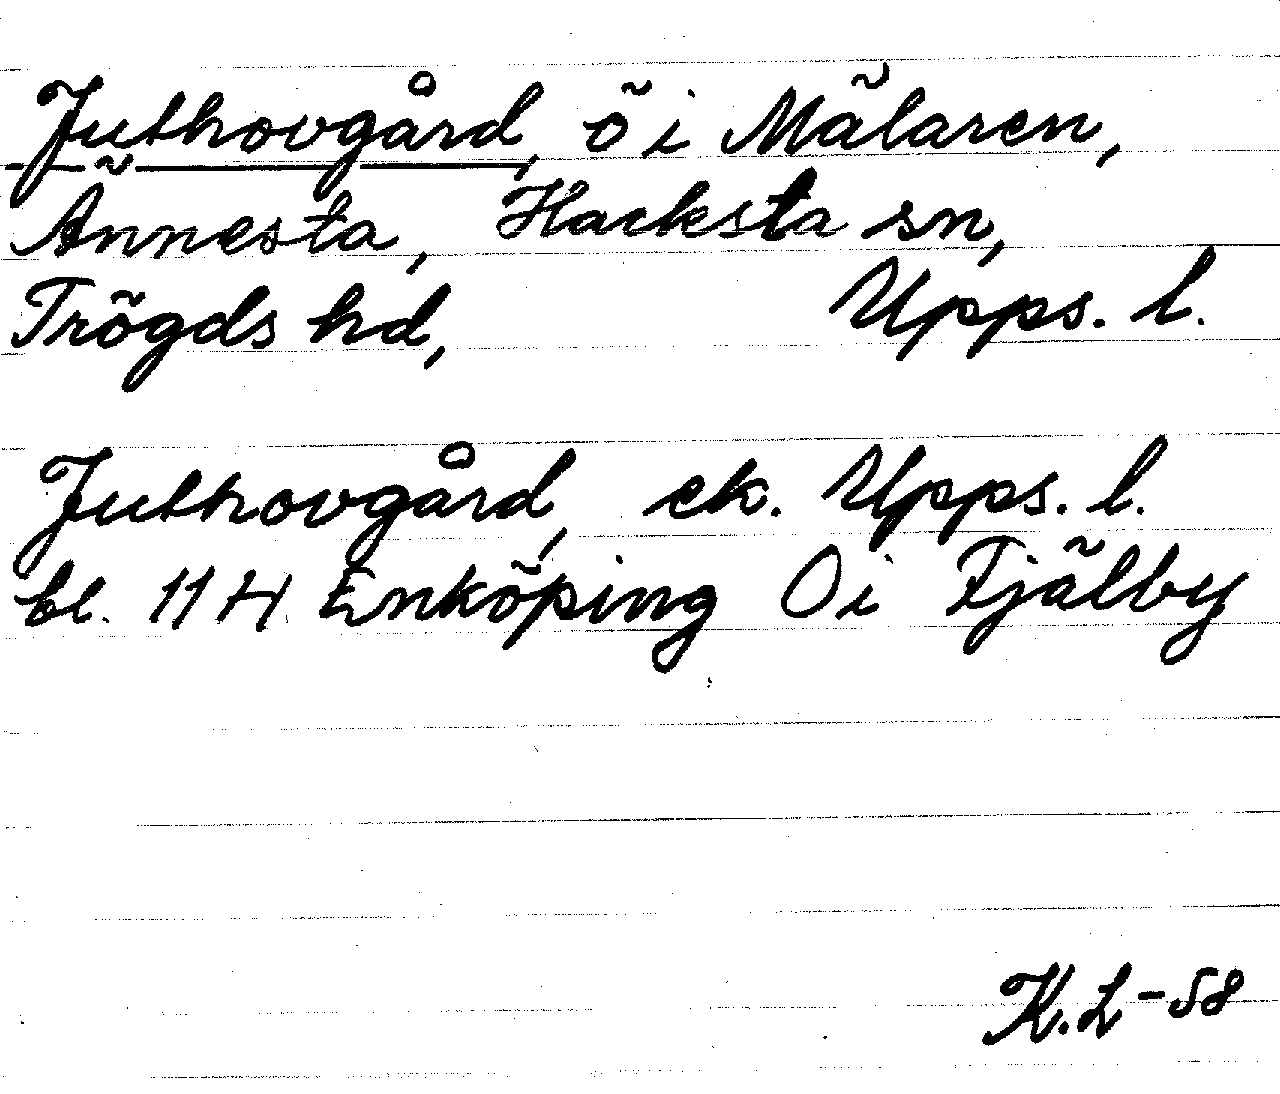 Juthovgård, ö i Mälaren,
Ännesta, Hacksta sn,
Trögds hd, Upps. l.
Juthovgård, ek. Upps. l.
bl. 114 Enköping O i Fjälby
K.L-58